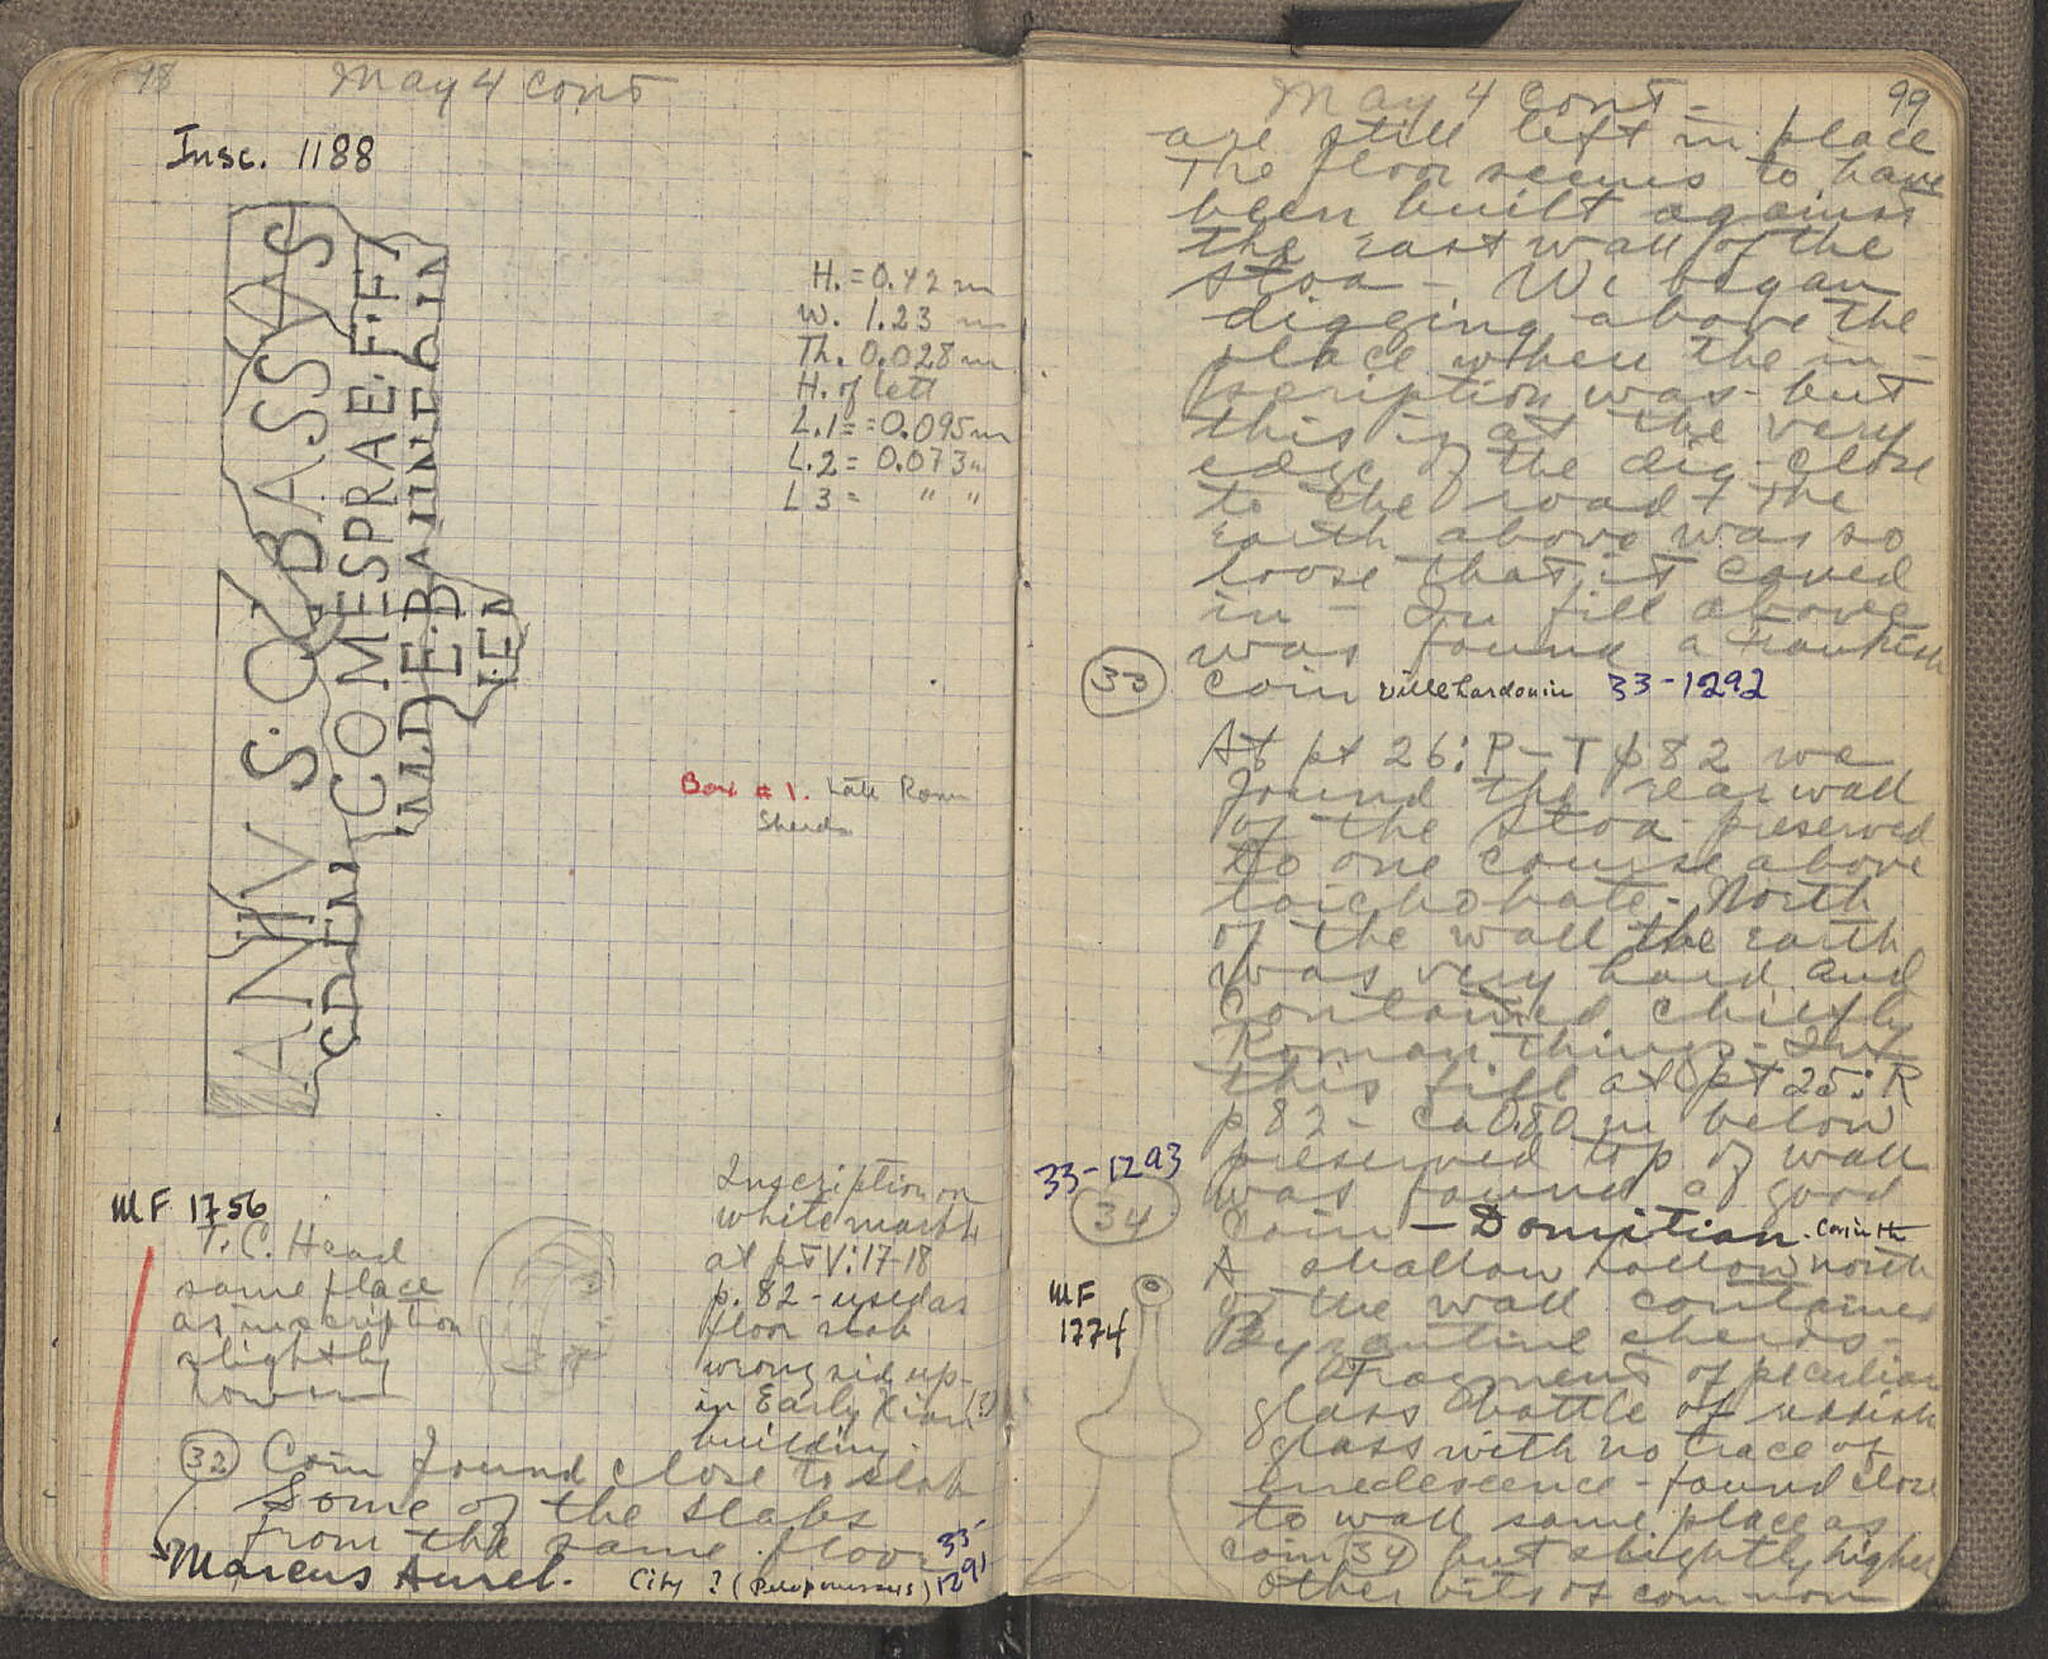 98
May 4 cont
Insc. 1188
ANIVS·Q BASSVS
CDEM COMESPRAE·F·F
MDE·BAIINE
KEN
H. = 0.42 m
W. 1.23 m
Th. 0.028 m
H. of lett
L.1 = 0.095 m
L.2 = 0.073 "
L 3 = " "
Box #1. Late Roman
Sherds
MF 1756
T.C. Head
same place
as inscription
slightly
lower
Inscription on
white marble
at pt V:17-18
p. 82 - used as
floor slab
wrong side up-
in Early Xian (?)
building.
32 Coin found close to slab
Some of the slabs
from the same floor
Marcus Aurel. City ? (Peloponnesus) 33-1291
99
May 4 cont -
are still left in place
The floor seems to have
been built against
the east wall of the
stoa - We began
digging above the
place where the in-
scription was - but
this is at the very
edge of the dig - close
to the road + the
earth above was so
loose that it caved
in - In fill above
was found a Frankish
33 coin Villehardouin 33-1292
At pt 26:P-T p 82 we
found the rear wall
of the stoa preserved
to one course above
toichobate - North
of the wall the earth
was very hard and
contained chiefly
Roman things - In
this fill at pt 25:R
p 82 - ca 0.80 m below
preserved top of wall
33-1293
34
was found a good
coin - Domitian. Corinth
A shallow hollow north
of the wall contained
Byzantine sherds -
MF
1774
Fragment of peculiar
glass bottle of
glass with no trace of
irredescence - found close
to wall same place as
coin 34 but slightly higher
Other bits of common